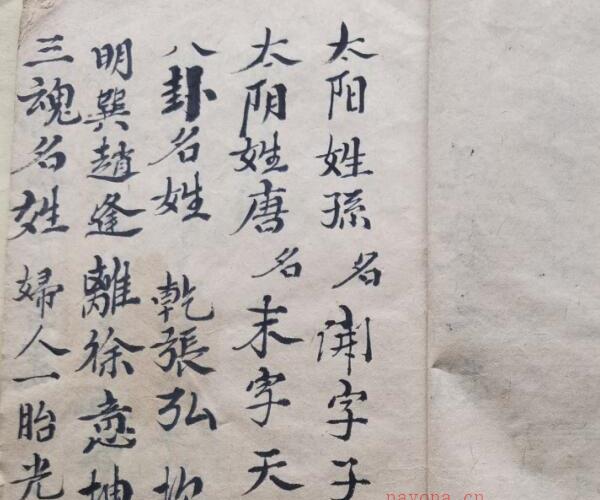 太阳姓孫名字子
太阴姓唐名末字天
八卦名姓 乾張弘
明巽趙逢離徐意坤
三魂名姓 婦人一胎光
nayona.cn